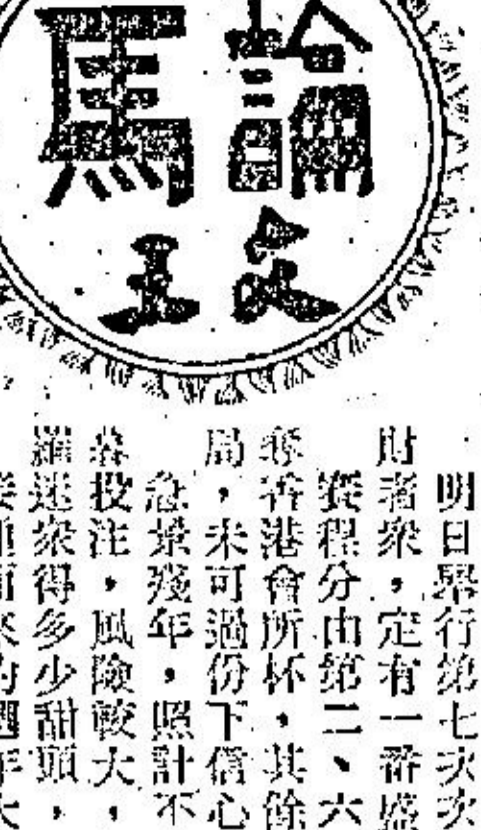 論馬
文王
明日舉行第七次次
財者衆，定有一番盛
賽程分由第二、六
奪香港會所杯，其餘
局，未可過份下信心
急景殘年，照計不
投注，風險較大，
迷衆得多少甜頭，